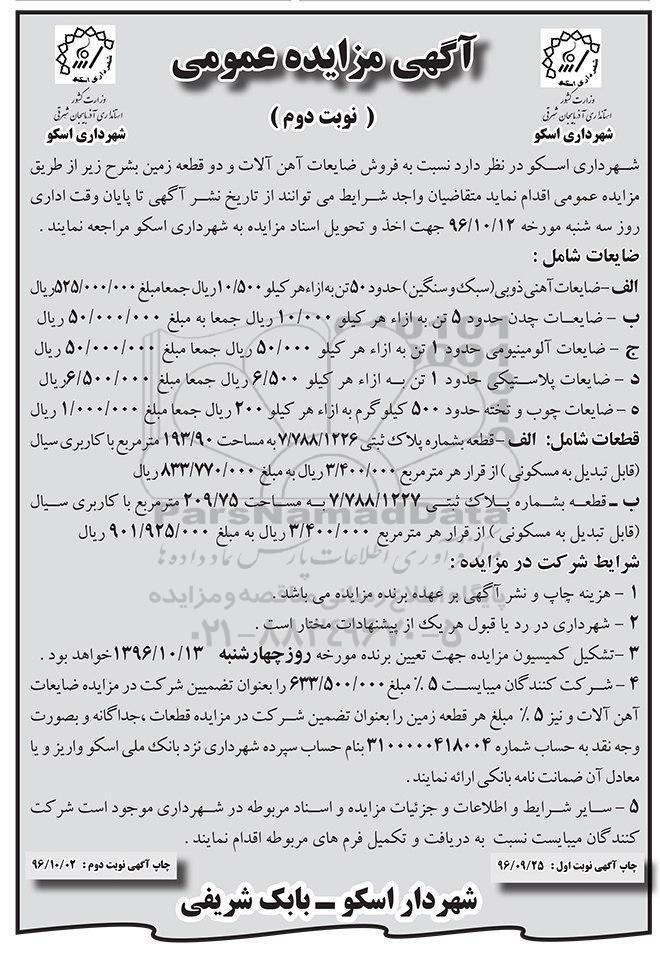 آگهی مزایده عمومی
( نوبت دوم )
شهرداری اسکو
وزارت کشور
استانداری آذربایجان شرقی
شهرداری اسکو
شهرداری اسکو
وزارت کشور
استانداری آذربایجان شرقی
شهرداری اسکو
شهرداری اسکو در نظر دارد نسبت به فروش ضایعات آهن آلات و دو قطعه زمین بشرح زیر از طریق
مزایده عمومی اقدام نماید متقاضیان واجد شرایط می توانند از تاریخ نشر آگهی تا پایان وقت اداری
روز سه شنبه مورخه ۹۶/۱۰/۱۲ جهت اخذ و تحویل اسناد مزایده به شهرداری اسکو مراجعه نمایند .
ضایعات شامل :
الف -ضایعات آهنی ذوبی(سبک و سنگین)حدود ۵۰ تن به ازاء هر کیلو ۱۰/۵۰۰ ریال جمعا مبلغ ۵۲۵/۰۰۰/۰۰۰ریال
ب - ضایعات چدن حدود ۵ تن به ازاء هر کیلو ۱۰/۰۰۰ ریال جمعا به مبلغ ۵۰/۰۰۰/۰۰۰ ریال
ج - ضایعات آلومینیومی حدود ۱ تن به ازاء هر کیلو ۵۰/۰۰۰ ریال جمعا مبلغ ۵۰/۰۰۰/۰۰۰ ریال
د - ضایعات پلاستیکی حدود ۱ تن به ازاء هر کیلو ۶/۵۰۰ ریال جمعا مبلغ ۶/۵۰۰/۰۰۰ریال
ه - ضایعات چوب و تخته حدود ۵۰۰ کیلو گرم به ازاء هر کیلو ۲۰۰ ریال جمعا مبلغ ۱/۰۰۰/۰۰۰ ریال
قطعات شامل: الف -قطعه بشماره پلاک ثبتی ۷/۷۸۸/۱۲۲۶ به مساحت ۱۹۳/۹۰ مترمربع با کاربری سیال
(قابل تبدیل به مسکونی ) از قرار هر مترمربع ۳/۴۰۰/۰۰۰ ریال به مبلغ ۸۳۳/۷۷۰/۰۰۰ ریال
ب ـ قطعه بشماره پلاک ثبتی ۷/۷۸۸/۱۲۲۷ به مساحت ۲۰۹/۷۵ مترمربع با کاربری سیال
(قابل تبدیل به مسکونی ) از قرار هر مترمربع ۳/۴۰۰/۰۰۰ ریال به مبلغ ۹۰۱/۹۲۵/۰۰۰ ریال
شرایط شرکت در مزایده :
۱ - هزینه چاپ و نشر آگهی بر عهده برنده مزایده می باشد .
۲ - شهرداری در رد یا قبول هر یک از پیشنهادات مختار است .
۳ -تشکیل کمیسیون مزایده جهت تعیین برنده مورخه روز چهارشنبه ۱۳۹۶/۱۰/۱۳خواهد بود .
۴ - شرکت کنندگان میبایست ۵ ٪ مبلغ ۶۳۳/۵۰۰/۰۰۰ را بعنوان تضمیین شرکت در مزایده ضایعات
آهن آلات و نیز ۵ ٪ مبلغ هر قطعه زمین را بعنوان تضمن شرکت در مزایده قطعات ،جداگانه و بصورت
وجه نقد به حساب شماره ۳۱۰۰۰۰۰۴۱۸۰۰۴ بنام حساب سپرده شهرداری نزد بانک ملی اسکو واریز و یا
معادل آن ضمانت نامه بانکی ارائه نمایند .
۵ - سایر شرایط و اطلاعات و جزئیات مزایده و اسناد مربوطه در شهرداری موجود است شرکت
کنندگان میبایست نسبت به دریافت و تکمیل فرم های مربوطه اقدام نمایند .
چاپ آگهی نوبت اول : ۹۶/۰۹/۲۵
چاپ آگهی نوبت دوم : ۹۶/۱۰/۰۲
شهردار اسکو ـ بابک شریفی
ParsNamadData
پایگاه اطلاع رسانی مناقصه و مزایده
۰۲۱-۸۸۳۴۹۶۷۰-۵